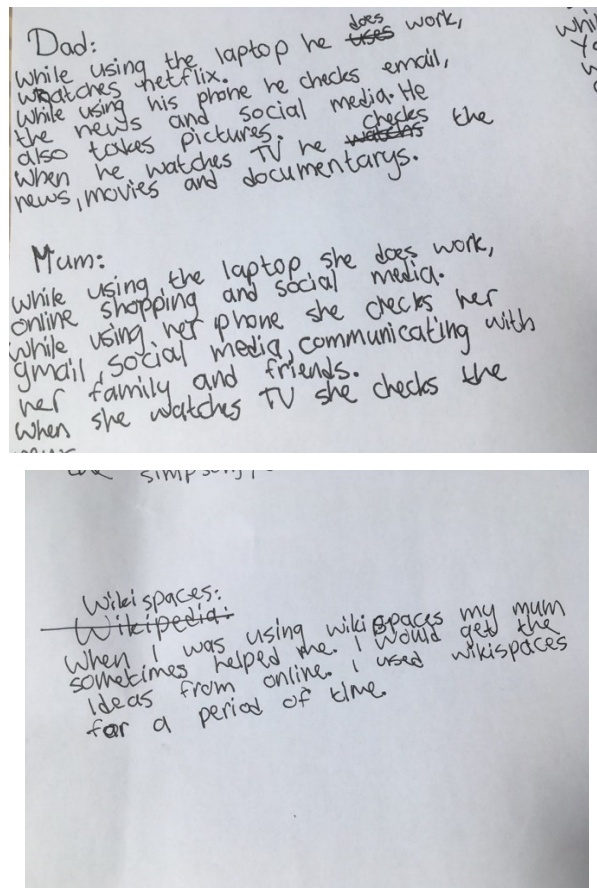 Dad:
While using the laptop he does work,
watches netflix.
While using his phone he checks email,
the news and social media. He
also takes pictures.
When he watches TV he checks the
news, movies and documentarys.
Mum:
While using the laptop she does work,
online shopping and social media.
While using her phone she checks her
gmail, social media, communicating with
her family and friends.
When she watches TV she checks the
the simpsons
Wikispaces:
Wikipedia:
When I was using wikispaces my mum
sometimes helped me. I would get the
ideas from online. I used wikispaces
for a period of time.